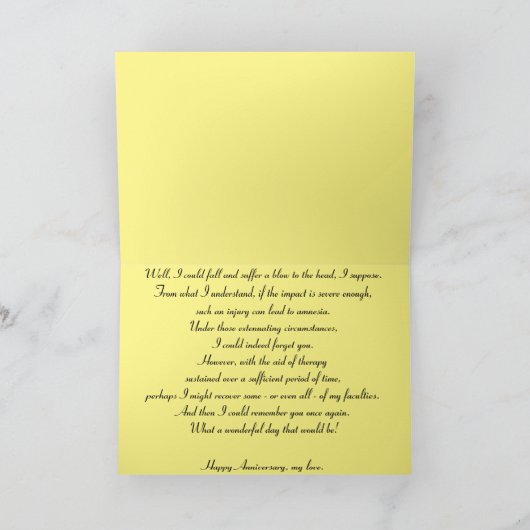 Well, I could fall and suffer a blow to the head, I suppose.
From what I understand, if the impact is severe enough,
such an injury can lead to amnesia.
Under those extenuating circumstances,
I could indeed forget you.
However, with the aid of therapy
sustained over a sufficient period of time,
perhaps I might recover some - or even all - of my faculties.
And then I could remember you once again.
What a wonderful day that would be!
Happy Anniversary, my love.